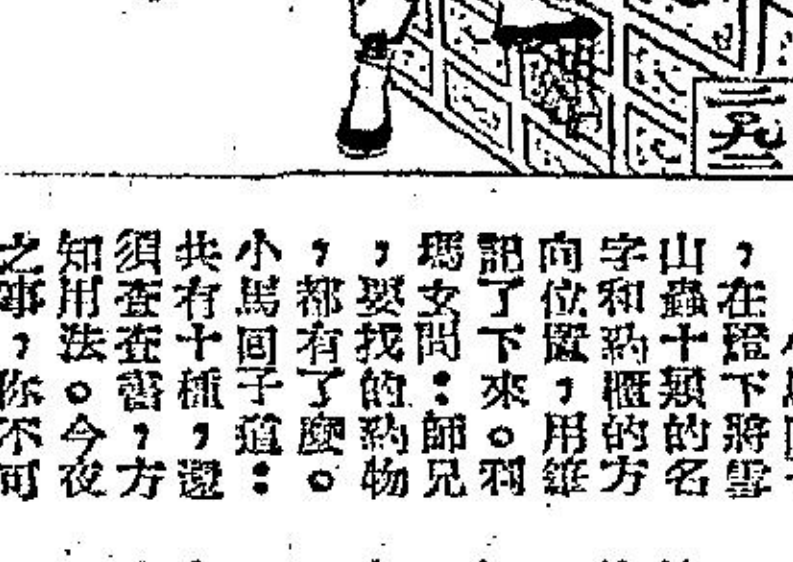 二九二
，在燈下將雪
山蟲十類的名
字和藥櫃的方
向位置，用
記了下來。羽
瑪女問：師兄
，要找的藥物
，都有了麼。
小馬回子道：
共有十種，還
須查查書，方
知用法。今夜
之事，你不可